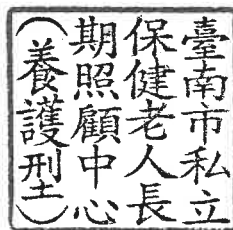 臺南市私立
保健老人長
期照顧中心
(養護型)